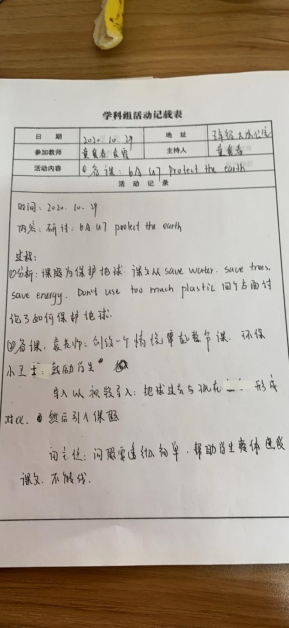 学科组活动记载表
日 期 2020.10.29 地 址
参加教师 主持人
活动内容 ①备课：6A U7 protect the earth
活 动 记 录
时间：2020.10.29
内容：研讨：6A U7 protect the earth
过程：
①分析：课题为保护地球 课文从 save water. save trees.
save energy. Don't use too much plastic 四个方面讨
论了如何保护地球.
②备课. 袁老师：创设一个情境贯穿整节课. 环保
小卫士：鼓励学生
导入以视频导入：地球过去与现在 形成
对比. 然后引入课题
问题要遵循简单. 帮助学生整体感知
课文. 不能